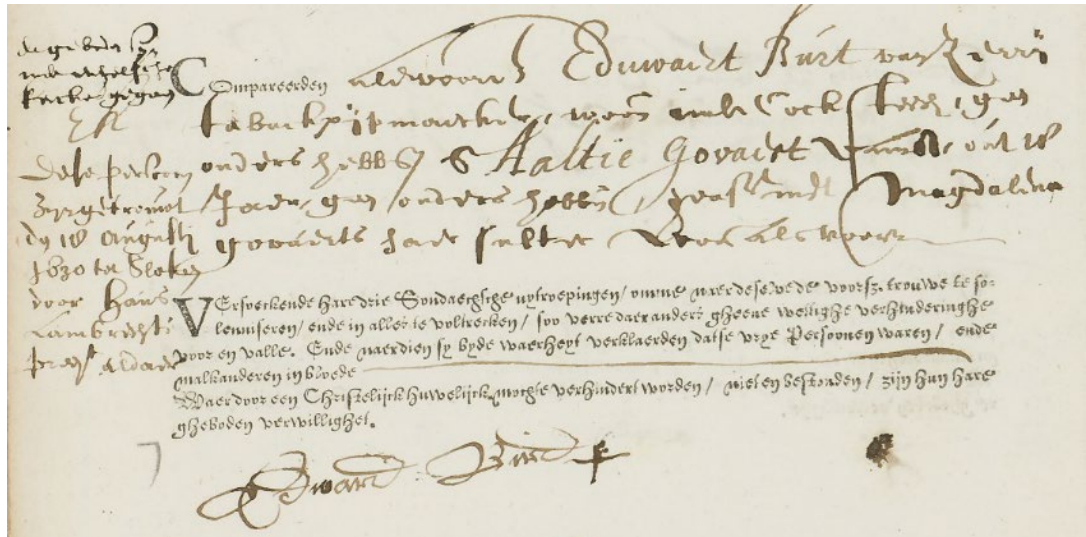 de geboden zyn
inde engelsche
kercke gegaen
dese persoon
zyn getrouwt
dy 18 Augusti
1630 te Sloten
voor Hans
Lambrechts
pred.t aldaer
Compareerden als vooren Eduwaert Burt van
taback pijpmaecker, woon inde geen
ouders hebb. & Haltie Govaert van out 18
Jaer, geen ouders hebb. geass. met Magdalena
govaerts haer suster woon als voor
VErsoeckende hare drie Sondaechsche uytroepingen / omme naer desevede voorsz. trouwe te so-
lemniseren / ende in alles te voltrecken / soo verre daer anders gheene wettighe verhinderinghe
voor en valle. Ende naerdien sy byde waerheyt verklaerden datse vrye Persoonen waren / ende
malkanderen in bloede
Waer door een Christelijck huwelijck mochte verhindert worden / niet en bestonden / zijn hun hare
gheboden verwillighet.
Edward Bird